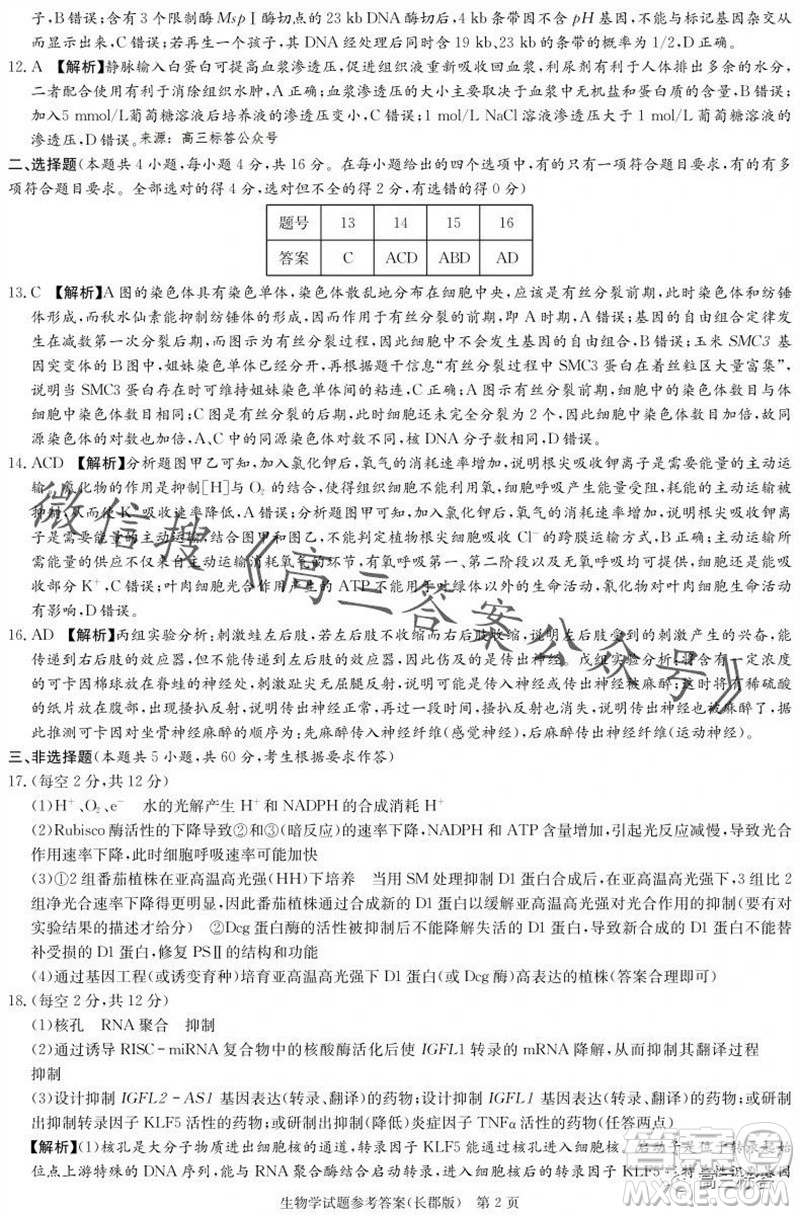 子,B错误;含有3个限制酶MspⅠ酶切点的23 kb DNA酶切后,4 kb条带因不含pH基因,不能与标记基因杂交从
而显现出来,C错误;若再生一个孩子,其DNA经处理后同时含19 kb、23 kb的条带的概率为1/2,D正确。
12. A 【解析】静脉输入白蛋白可提高血浆渗透压,促进组织液重新吸收回血浆,利尿剂有利于人体排出多余的水分,
二者配合使用有利于消除组织水肿,A正确;血浆渗透压的大小主要取决于血浆中无机盐和蛋白质的含量,B错误;
加入5 mmol/L葡萄糖溶液后培养液的渗透压变小,C错误;1 mol/L NaCl溶液渗透压大于1 mol/L葡萄糖溶液的
渗透压,D错误。来源:高三标答公众号
二、选择题(本题共4小题,每小题4分,共16分。在每小题给出的四个选项中,有的只有一项符合题目要求,有的有多
项符合题目要求。全部选对的得4分,选对但不全的得2分,有选错的得0分)
题号 13 14 15 16
答案 C ACD ABD AD
13. C 【解析】A图的染色体具有染色单体,染色体散乱地分布在细胞中央,应该是有丝分裂前期,此时染色体和纺锤
体形成,而秋水仙素能抑制纺锤体的形成,因此可作用于有丝分裂的前期,即A时期,A错误;基因的自由组合定律发
生在减数第一次分裂后期,而图示为有丝分裂过程,因此不会发生基因的自由组合,B错误;玉米SMC3基
因突变体的B图中,姐妹染色单体已经分开,再根据题干信息“有丝分裂过程中SMC3蛋白在着丝粒区大量富集”,
说明当SMC3蛋白存在时可维持姐妹染色单体间的粘连,C正确;A图示有丝分裂前期,此时细胞中的染色体数目与体
细胞中染色体数目相同;C图是有丝分裂的后期,此时细胞还未完全分裂为2个,因此细胞中的染色体数目加倍,故同
源染色体的对数也加倍,A、C中同源染色体对数不同,核DNA分子数相同,D错误。
14. ACD 【解析】分析题图甲乙可知,加入氯化钾后,氧气的消耗速率增加,说明根尖吸收钾离子是需要能量的主动运
输,氰化物的作用是抑制[H]与O₂的结合,使得组织细胞不能利用氧,细胞呼吸产生能量受阻,耗能的主动运输被
抑制,从而使K⁺吸收速率降低,A错误;分析题图甲可知,加入氯化钾后,氧气的消耗速率增加,说明根尖吸收钾离
子是需要能量的主动运输,结合图甲和图乙,不能判定植物根尖细胞吸收Cl⁻的跨膜运输方式,B正确;4小时后组
织细胞的氧气消耗来自主动运输消耗氧气的有氧呼吸的第一、第二阶段以及无氧呼吸均可提供能量,细胞还能吸
收部分K⁺,C错误;叶肉细胞光合作用产生的ATP不能用于叶绿体以外的生命活动,氰化物对叶肉细胞生命活动
有影响,D错误。
16. AD 【解析】丙组实验分析:刺激蛙左后肢,若左后肢不收缩而右后肢收缩,说明左后肢的刺激产生的兴奋,能
传递到右后肢的效应器,但不能传递到左后肢的效应器,因此涉及的是传出神经。戊组实验分析:当将含有一定浓度
的可卡因棉球放在脊蛙的神经处,刺激趾尖无屈腿反射,说明可能是传入神经或传出神经被麻醉;这时将有稀硫酸
的纸片放在腹部,出现搔扒反射,说明传出神经正常,再过一段时间,搔扒反射也消失,说明传出神经也被麻醉了,据
此推测可卡因对坐骨神经麻醉的顺序为:先麻醉传入神经纤维(感觉神经),后麻醉传出神经纤维(运动神经)。
三、非选择题(本题共5小题,共60分,考生根据要求作答)
17. (每空2分,共12分)
(1)H⁺、O₂、e⁻ 水的光解产生H⁺和NADPH的合成消耗H⁺
(2)Rubisco酶活性的下降导致②和③(暗反应)的速率下降,NADPH和ATP含量增加,引起光反应减慢,导致光合
作用速率下降,此时细胞呼吸速率可能加快
(3)①2组番茄植株在亚高温高光强(HH)下培养 当用SM处理抑制D1蛋白合成后,在亚高温高光强下,3组比2
组净光合速率下降得更明显,因此番茄植株通过合成新的D1蛋白以缓解亚高温高光强对光合作用的抑制(要有对
实验结果的描述才给分) ②Dcg蛋白酶的活性被抑制后不能降解失活的D1蛋白,导致新合成的D1蛋白不能替
补受损的D1蛋白,修复PSⅡ的结构和功能
(4)通过基因工程(或诱变育种)培育亚高温高光强下D1蛋白(或Dcg酶)高表达的植株(答案合理即可)
18. (每空2分,共12分)
(1)核孔 RNA聚合 抑制
(2)通过诱导RISC-miRNA复合物中的核酸酶活化后使IGFL1转录的mRNA降解,从而抑制其翻译过程
抑制
(3)设计抑制IGFL2-AS1基因表达(转录、翻译)的药物;设计抑制IGFL1基因表达(转录、翻译)的药物;或研制
出抑制转录因子KLF5活性的药物;或研制出抑制(降低)炎症因子TNFα活性的药物(任答两点)
【解析】(1)核孔是大分子物质进出细胞核的通道,转录因子KLF5能通过核孔进入细胞核。启动子是位于转录起始
位点上游特殊的DNA序列,能与RNA聚合酶结合启动转录,进入细胞核的转录因子KLF5与特异性识别基因
生物学试题参考答案(长郡版) 第2页
微信搜《高三答案公众号》
高三标答
答案圈
MXQE.COM